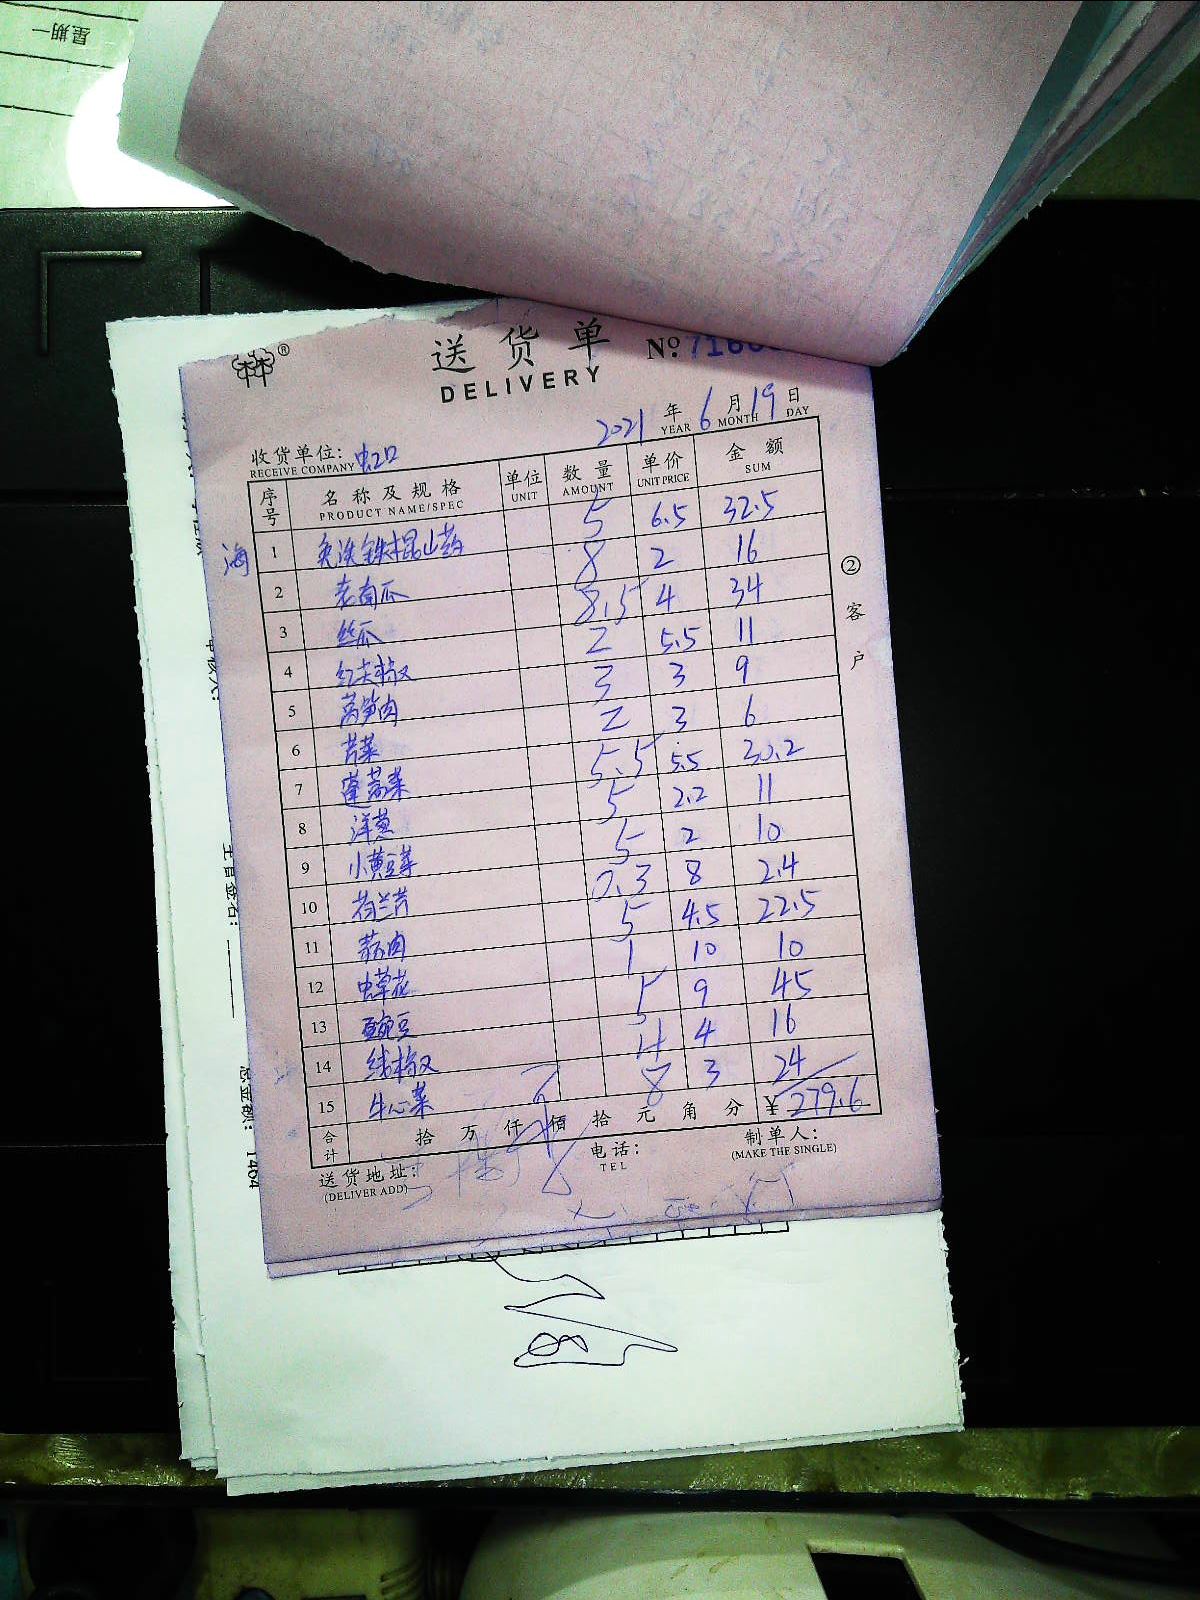 星期一
送货单 № 7160
DELIVERY
2021 年 6 月 19 日
YEAR MONTH DAY
收货单位: 虹口
RECEIVE COMPANY
序号 名称及规格 单位 数量 单价 金额
PRODUCT NAME/SPEC UNIT AMOUNT UNIT PRICE SUM
海
1 免洗铁棍山药 5 6.5 32.5
2 老南瓜 8 2 16
3 丝瓜 8.5 4 34
4 红尖椒 2 5.5 11
5 莴笋肉 3 3 9
6 芹菜 2 3 6
7 蓬蒿菜 5.5 5.5 30.2
8 洋葱 5 2.2 11
9 小黄豆芽 5 2 10
10 荷兰芹 0.3 8 2.4
11 蒜肉 5 4.5 22.5
12 虫草花 1 10 10
13 豌豆 5 9 45
14 线椒 4 4 16
15 牛心菜 8 3 24
合计 拾 万 仟 佰 拾 元 角 分 ¥ 279.6
送货地址: 电话: 制单人:
(DELIVER ADD) TEL (MAKE THE SINGLE)
②客户
主管签名:
总金额: 1464